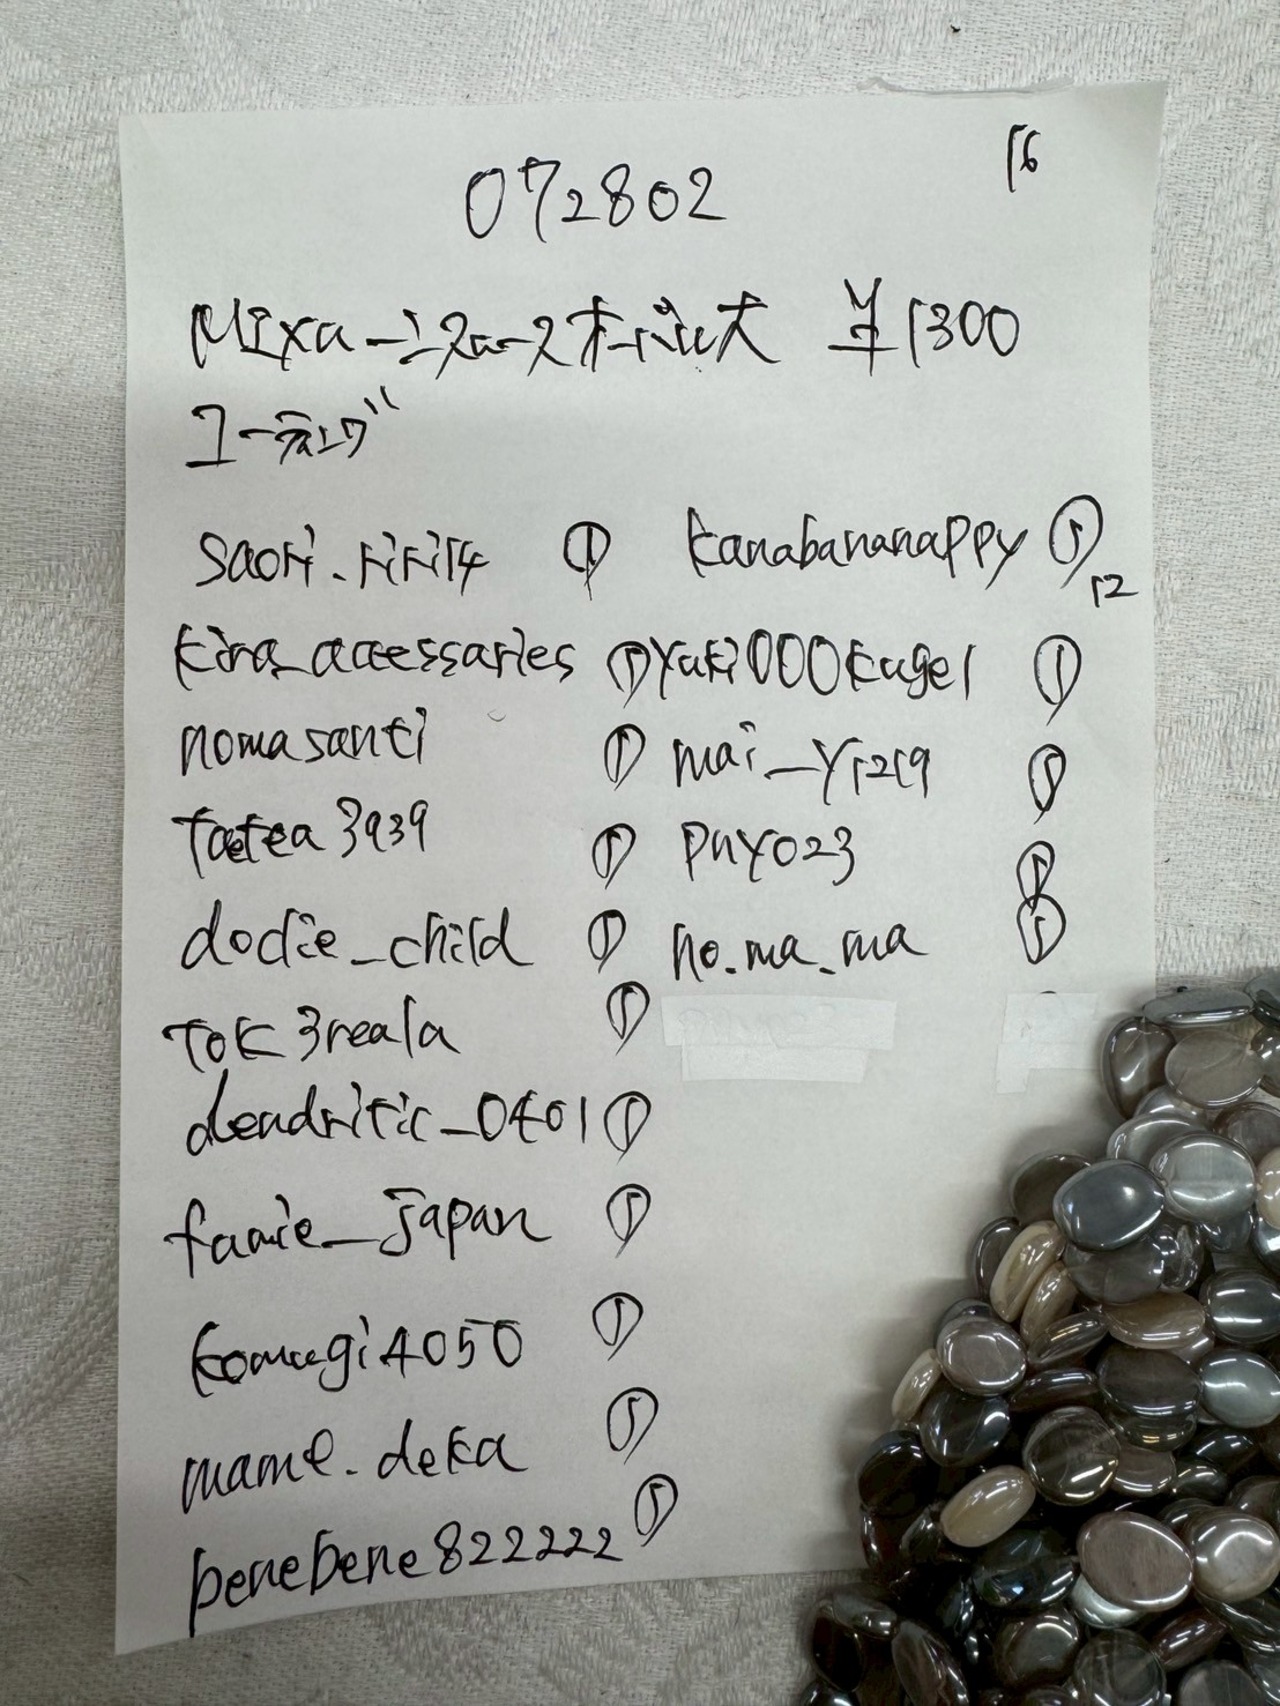 16
072802
Mixムーンストーンオーバル大 ¥1300
コーティング
saori.riri14 ①
kira_accessaries ①
nomasanti ①
taetea3939 ①
dodie_child ①
tok3reala ①
dendritic_0401 ①
famie_japan ①
komugi4050 ①
mame.deka ①
benebene822222 ①
kanabananappy ① 12
yuki1000kugel ①
mai_y1219 ①
puyo23 ①
no.ma.ma ①